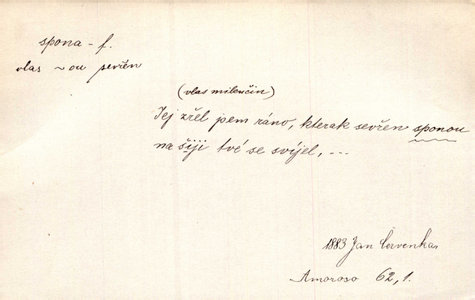 spona - f.
vlas ~ou sevřen
(vlas milenčin)
Jej zřel jsem ráno, kterak sevřen sponou
na šíji tvé se svíjel, ...
1883 Jan Červenka,
Amoroso 62,1.